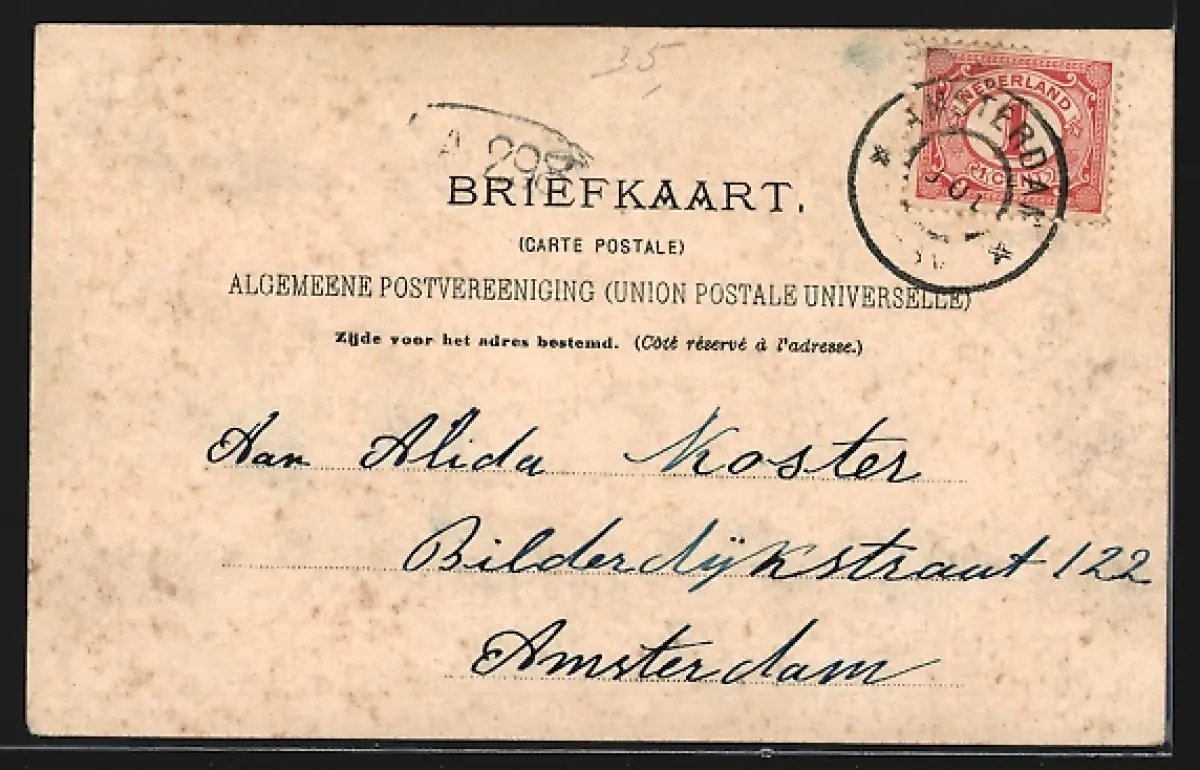 35,
A 298
NEDERLAND
1
AMSTERDAM
BRIEFKAART.
(CARTE POSTALE)
ALGEMEENE POSTVEREENIGING (UNION POSTALE UNIVERSELLE)
Zijde voor het adres bestemd. (Côté réservé à l'adresse.)
Aan Alida Koster
Bilderdijkstraat 122
Amsterdam